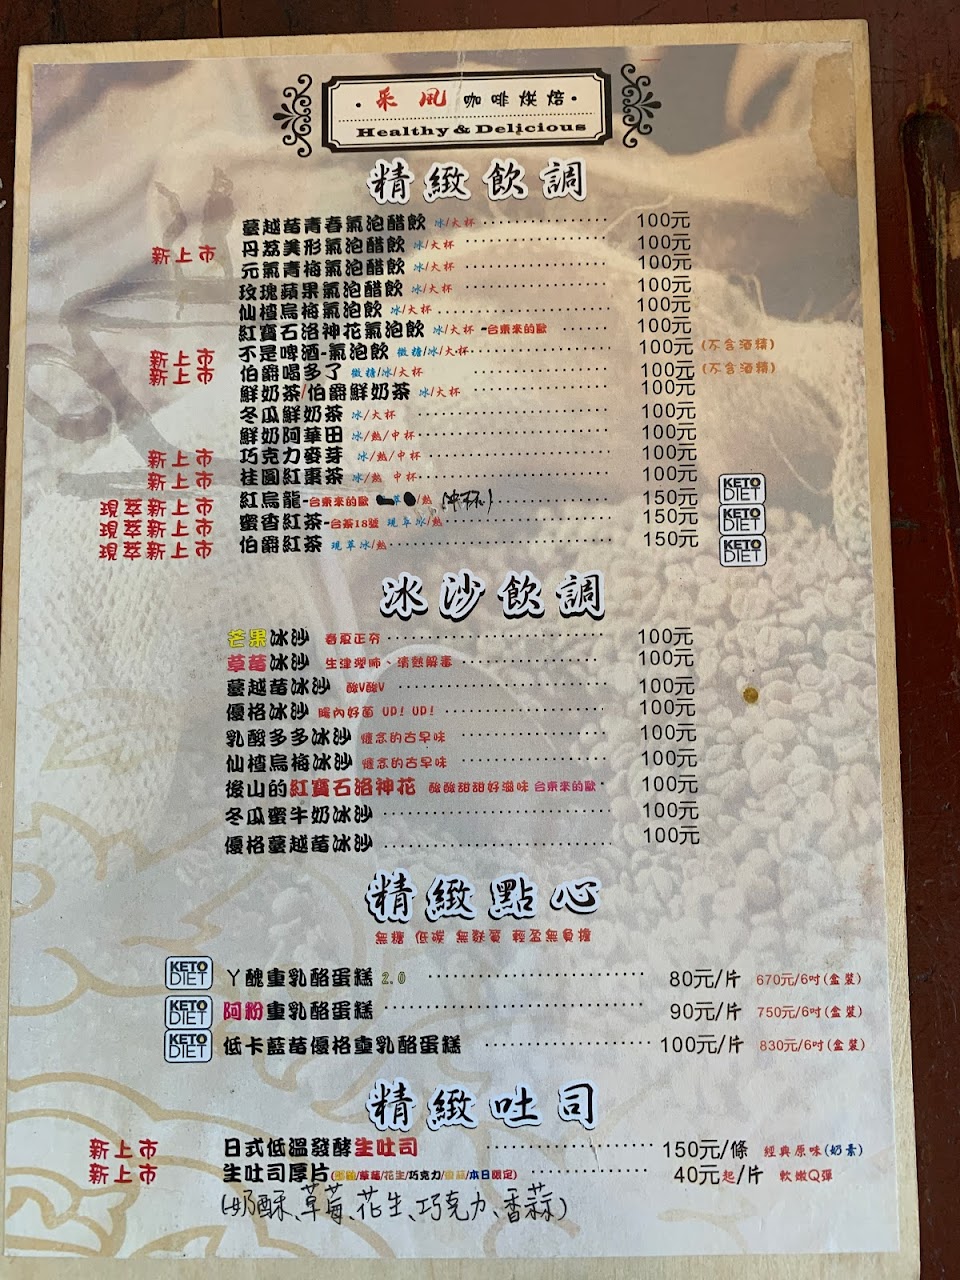 采風 咖啡烘焙
Healthy & Delicious
精緻飲調
蔓越莓青春氣泡醋飲 冰/大杯 100元
新上市 丹荔美形氣泡醋飲 冰/大杯 100元
元氣青梅氣泡醋飲 冰/大杯 100元
玫瑰蘋果氣泡醋飲 冰/大杯 100元
仙楂烏梅氣泡飲 冰/大杯 100元
紅寶石洛神花氣泡飲 冰/大杯 -台東來的歐 100元
新上市 不是啤酒-氣泡飲 微糖/冰/大杯 100元 (不含酒精)
新上市 伯爵喝多了 微糖/冰/大杯 100元 (不含酒精)
鮮奶茶/伯爵鮮奶茶 冰/大杯 100元
冬瓜鮮奶茶 冰/大杯 100元
鮮奶阿華田 冰/熱/中杯 100元
新上市 巧克力麥芽 冰/熱/中杯 100元
新上市 桂圓紅棗茶 冰/熱 中杯 100元
現萃新上市 紅烏龍-台東來的歐 萃/熱 (中杯) 150元 KETO DIET
現萃新上市 蜜香紅茶-台茶18號 現萃冰/熱 150元 KETO DIET
現萃新上市 伯爵紅茶 現萃冰/熱 150元 KETO DIET
冰沙飲調
芒果冰沙 春夏正夯 100元
草莓冰沙 生津潤肺、清熱解毒 100元
蔓越莓冰沙 酸V酸V 100元
優格冰沙 腸內好菌 UP! UP! 100元
乳酸多多冰沙 懷念的古早味 100元
仙楂烏梅冰沙 懷念的古早味 100元
後山的紅寶石洛神花 酸酸甜甜好滋味 台東來的歐 100元
冬瓜蜜牛奶冰沙 100元
優格蔓越莓冰沙 100元
精緻點心
無糖 低碳 無麩質 輕盈無負擔
KETO DIET ㄚ醜重乳酪蛋糕 2.0 80元/片 670元/6吋(盒裝)
KETO DIET 阿粉重乳酪蛋糕 90元/片 750元/6吋(盒裝)
KETO DIET 低卡藍莓優格重乳酪蛋糕 100元/片 830元/6吋(盒裝)
精緻吐司
新上市 日式低溫發酵生吐司 150元/條 經典原味(奶素)
新上市 生吐司厚片(/草莓/花生/巧克力/香蒜/本日限定) 40元起/片 軟嫩Q彈
(奶酥、草莓、花生、巧克力、香蒜)